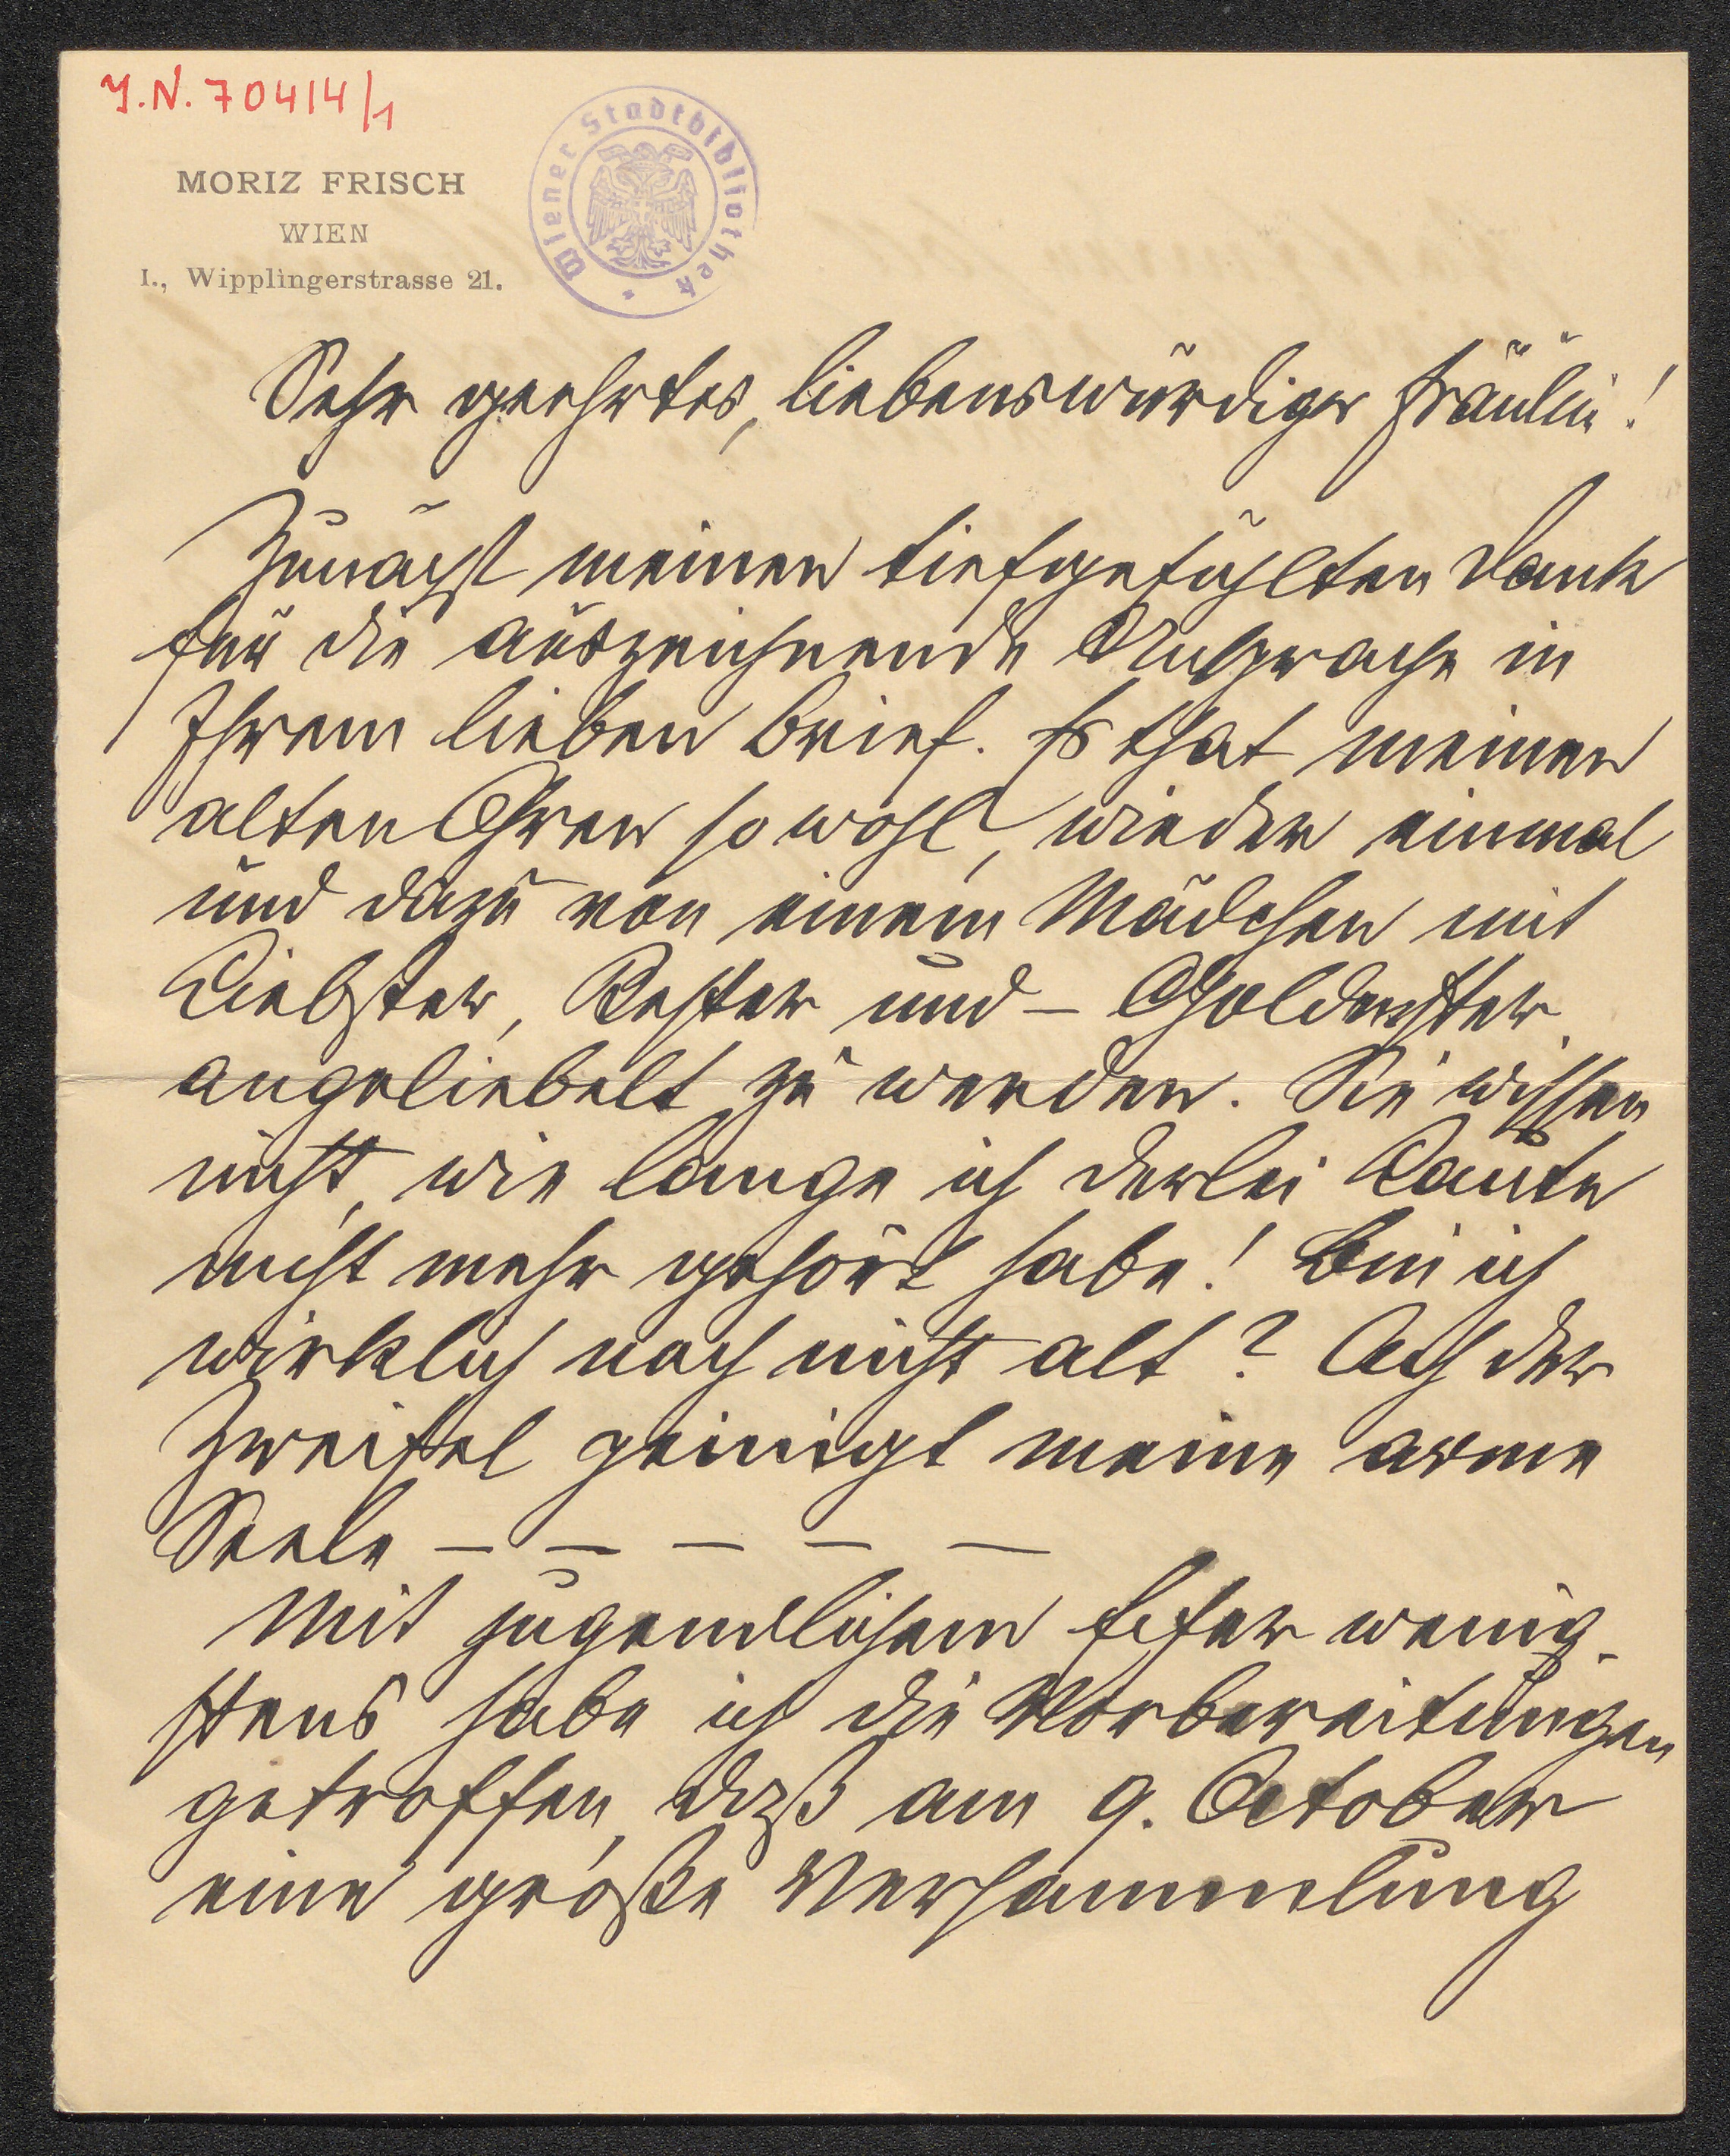 J.N. 70414/1
Wiener Stadtbibliothek
MORIZ FRISCH
WIEN
I., Wipplingerstrasse 21.
Sehr geehrtes, liebenswürdiges Fräulein!
Zunächst meinen tiefgefühlten Dank
für die auszeichnende Ansprache in
Ihrem lieben Brief. Es that meinen
alten Ohren so wohl, wieder einmal
und dazu von einem Mädchen mit
Liebster, Bester und – Goldenster
angeliebelt zu werden. Sie wissen
nicht, wie lange ich derlei Laute
nicht mehr gehört habe! Bin ich
wirklich noch nicht alt? Ach der
Zweifel peinigt meine arme
Seele – – – – –
Mit jugendlichem Eifer wenig-
stens habe ich die Vorbereitungen
getroffen, daß am 9. October
eine große Versammlung